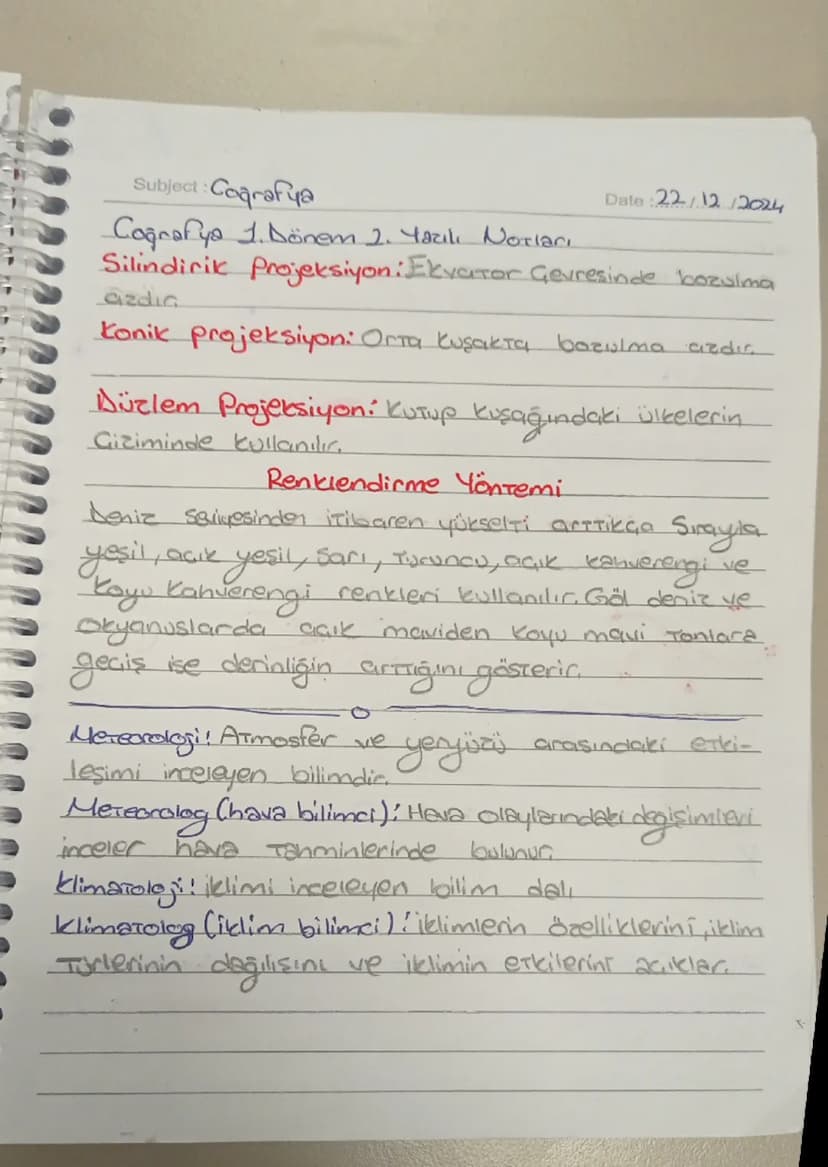 Subject : Coğrafya
Date : 22/12/2024
Coğrafya 1. Dönem 2. Yazılı Notları
Silindirik Projeksiyon: Ekvator Çevresinde bozulma
azdır.
Konik projeksiyon: Orta Kuşakta bozulma azdır.
Düzlem Projeksiyon: Kutup Kuşağındaki ülkelerin
Çiziminde kullanılır.
Renklendirme Yöntemi
Deniz seviyesinden itibaren yükselti arttıkça Sırayla
yeşil, açık yeşil, sarı, turuncu, açık kahverengi ve
Koyu Kahverengi renkleri kullanılır. Göl deniz ve
Okyanuslarda açık maviden koyu mavi tonlara
geçiş ise derinliğin arttığını gösterir.
Meteoroloji: Atmosfer ve yeryüzü arasındaki etki-
leşimi inceleyen bilimdir.
Meteorolog (hava bilimci): Hava olaylarındaki değişimleri
inceler hava tahminlerinde bulunur.
Klimatoloji: iklimi inceleyen bilim dalı
Klimatolog (iklim bilimci): iklimlerin özelliklerini, iklim
Türlerinin dağılışını ve iklimin etkilerini açıklar.